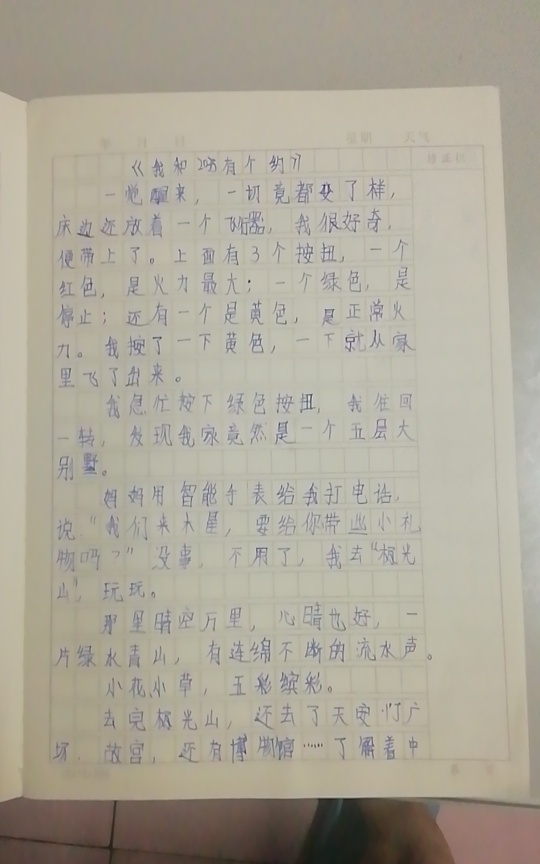 年 月 日 星期 天气
《我和2035有个约》
一觉醒来，一切竟都变了样，
床边还放着一个飞行器，我很好奇，
便带上了。上面有3个按扭，一个
红色，是火力最大；一个绿色，是
停止；还有一个是黄色，是正常火
力。我按了一下黄色，一下就从家
里飞了出来。
我急忙按下绿色按扭，我往回
一转，发现我家竟然是一个五层大
别墅。
妈妈用智能手表给我打电话，
说："我们来木星，要给你带些小礼
物吗？"没事，不用了，我去"极光
山"，玩玩。
那里晴空万里，心晴也好，一
片绿水青山，有连绵不断的流水声。
小花小草，五彩缤彩。
去完极光山，还去了天安门广
场、故宫，还有博物馆……了解着中